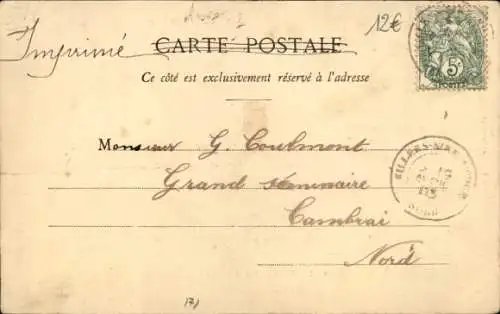 12€
Imprimé
CARTE POSTALE
Ce côté est exclusivement réservé à l'adresse
5c
POSTES
Monsieur G. Coulmont
Grand séminaire
Cambrai
Nord
NORD